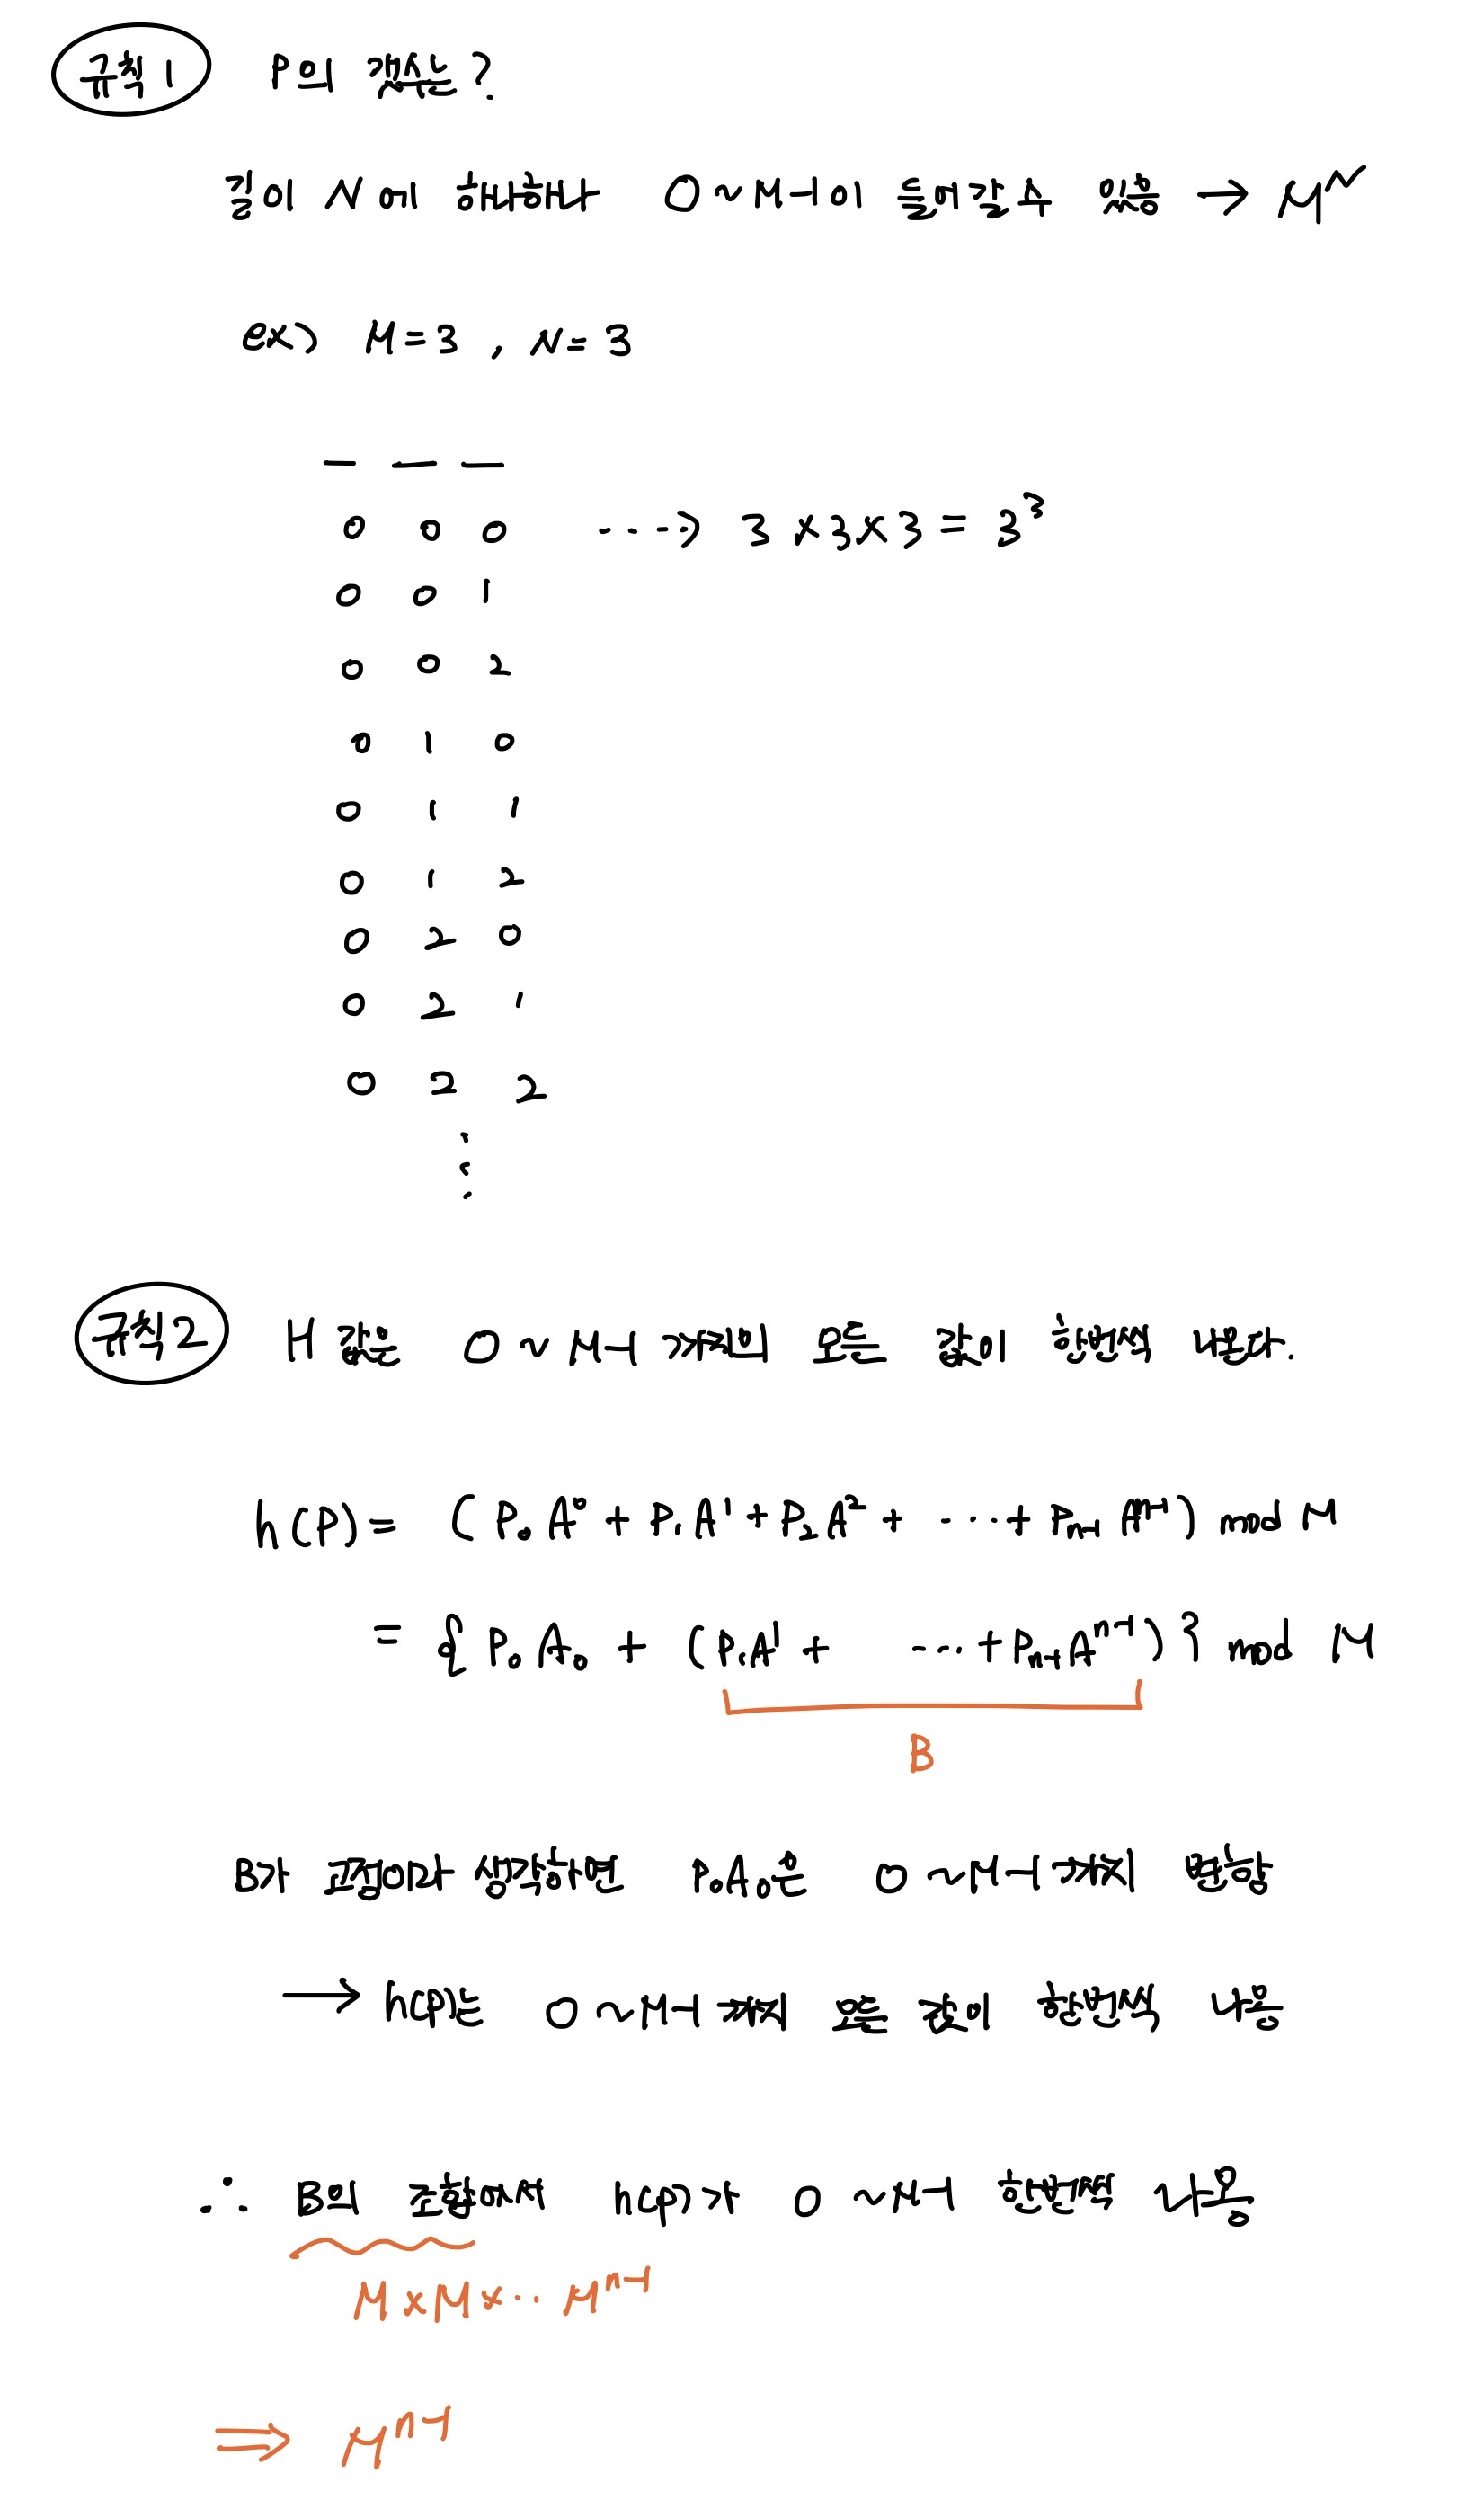 규칙1 P의 개수는?
길이 N에 대해서 0~M-1이 들어갈 수 있음 → M^N
ex) M=3, N=3
_ _ _
0 0 0 ---> 3×3×3=3³
0 0 1
0 0 2
0 1 0
0 1 1
0 1 2
0 2 0
0 2 1
0 2 2
⋮
규칙2 H값은 0~M-1까지 모든 값이 한번씩 나온다.
h(P)= (P₀A⁰+P₁A¹+P₂A²+···+Pₙ₋₁Aⁿ⁻¹) mod M
= {P₀A₀+(P₁A¹+ ···+Pₙ₋₁Aⁿ⁻¹)} mod M
B
B가 고정이라 생각하면 P₀A₀은 0~M-1까지 변동
→ h(P)는 0~M-1까지 모든 값이 한번씩 나옴
∴ B의 값에서 h(P)가 0~M-1 한번씩 나옴
M×M×·· Mⁿ⁻¹
⇒ Mⁿ⁻¹